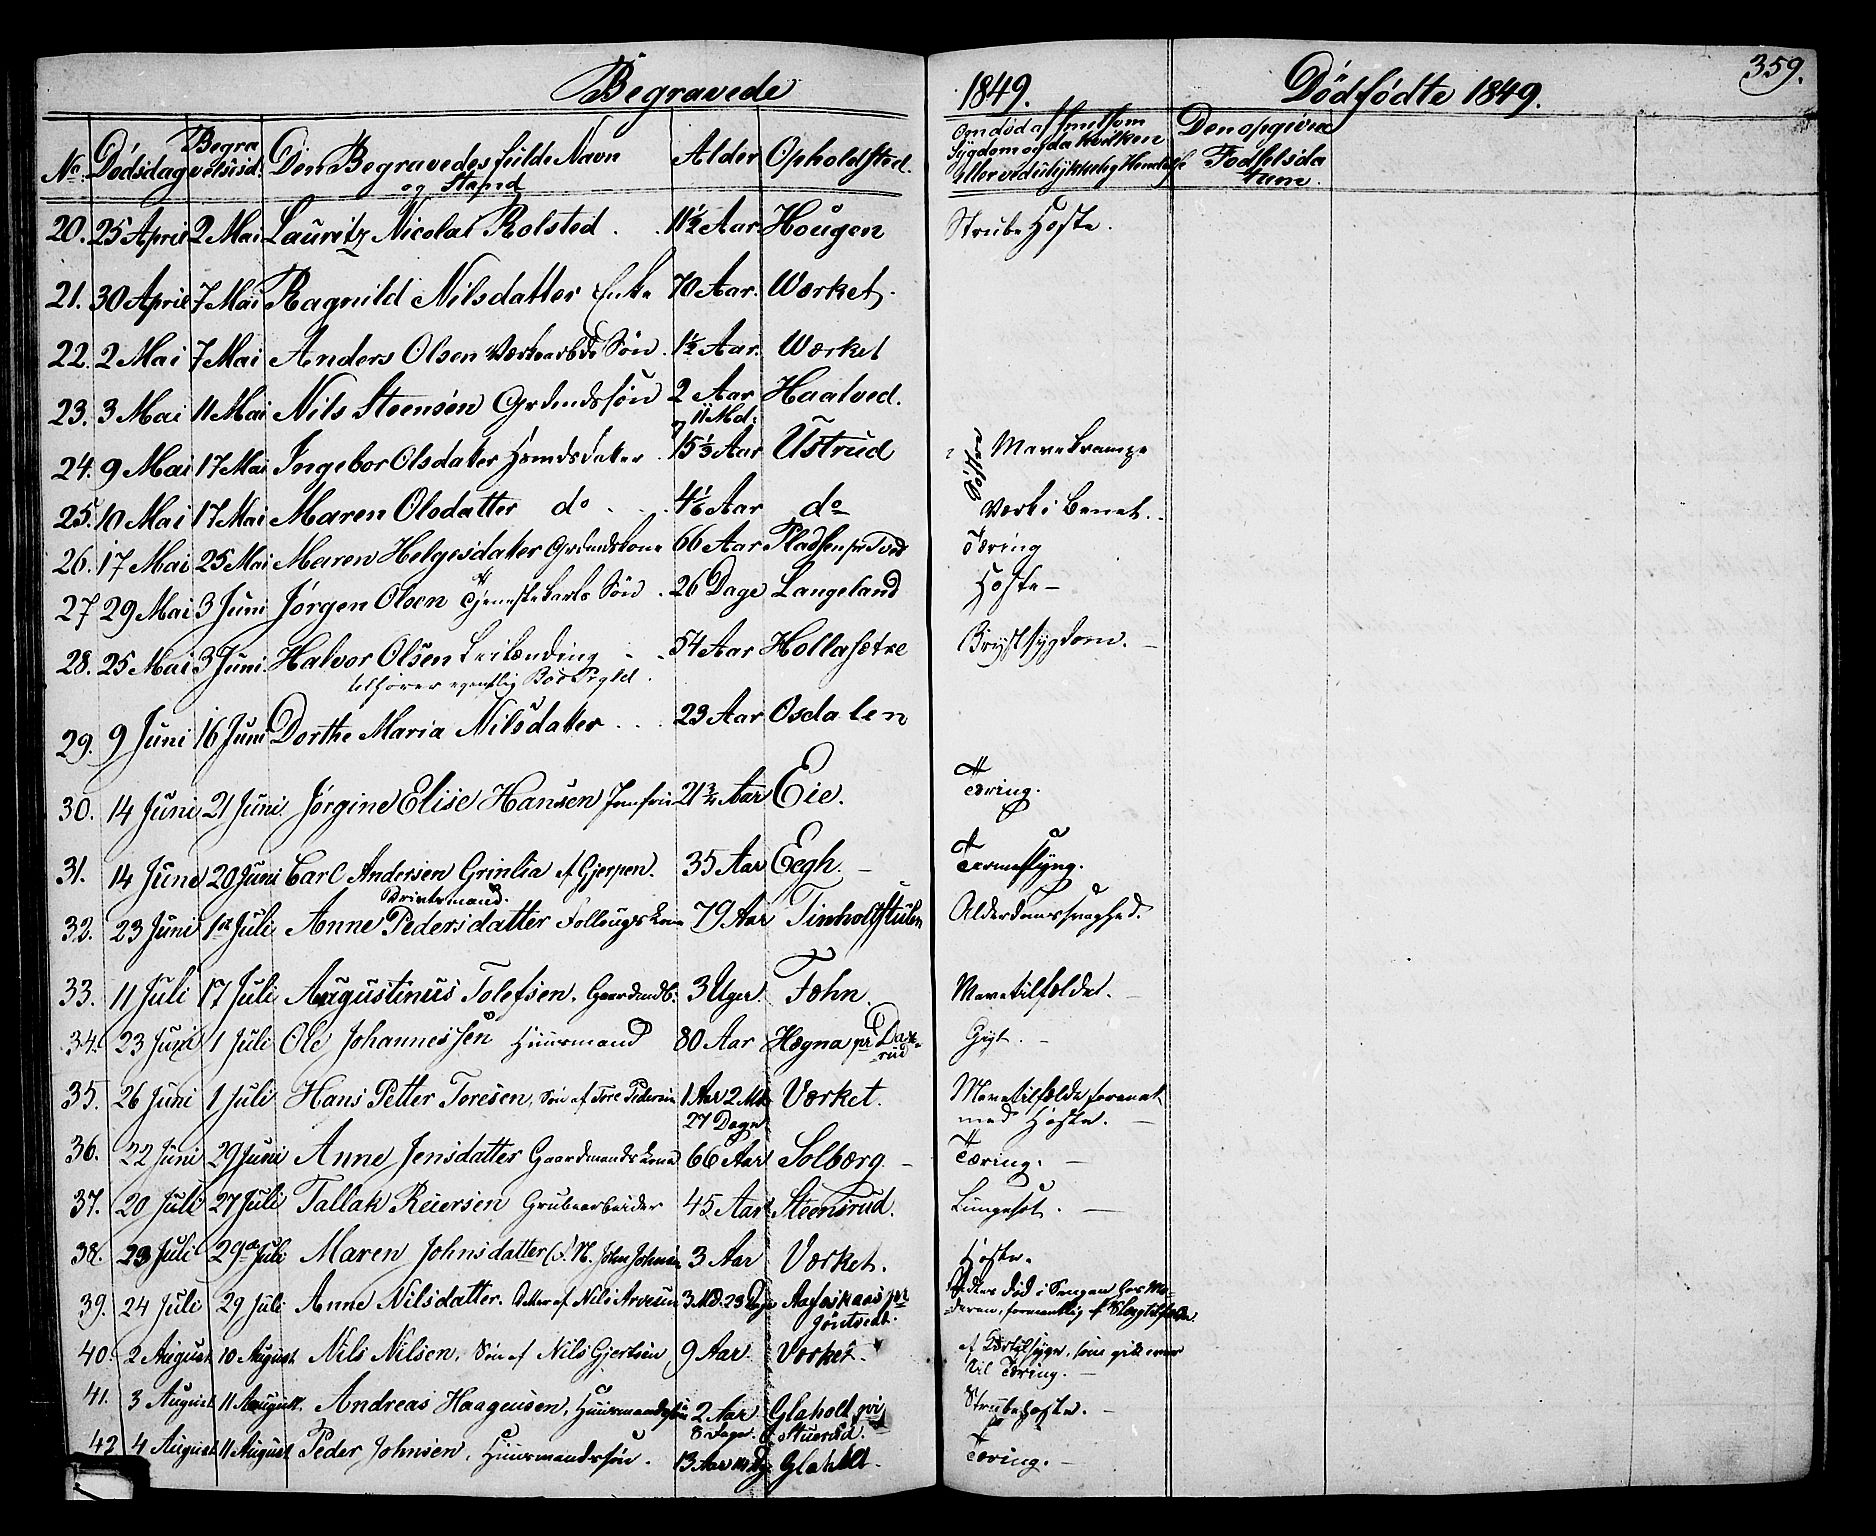 Begravede 1849. Dödfödte 1849. 359.
No. Dödsdag Begravelsesd. Den Begravedes fulde Navn og Stand Alder Opholdsted. Om död af Smitsom Sygdom og da hvilken eller ved ulykkelig Hendelse Den opgivne Födselsdatum.
20. 25 April 2 Mai Lauritz Nicolai Rolsted. 11½ Aar Hougen Strubehoste.
21. 30 April 7 Mai Ragnild Nilsdatter Enke 70 Aar. Wærket.
22. 2 Mai 7 Mai Anders Olsen Værksarbds Sön. 1½ Aar. Wærket
23. 3 Mai 11 Mai Nils Steensen Grdmdssön 2 Aar 11 Md: Haatved.
24. 9 Mai 17 Mai Ingebor Olsdatter Hsmdsdatter. 15½ Aar Ustrud Mavekrampe
25. 10 Mai 17 Mai Maren Olsdatter do 4½ Aar do Værk i Benet.
26. 17 Mai 25 Mai Maren Helgesdatter Grdmdskone 66 Aar Pladsen pr Tved Tæring
27 29 Mai 3 Juni Jörgen Olsen Tjenestekarls Sön. 26 Dage Langeland Hoste
28. 25 Mai 3 Juni Halvor Olsen Leilænding 54 Aar Hollasætre Brystsygdom.
tilhörer egentlig Böe Prgld.
29. 9 Juni 16 Juni Dorthe Maria Nilsdatter 23 Aar Osdalen
30. 14 Juni 21 Juni Jørgine Elise Hansen Jomfru 21¾ Aar Eie. Tæring.
31. 14 June 20 Juni Carl Andersen Grinlia af Gjerpen. 35 Aar Eegh.
32. 23 Juni 1st Juli Anne Pedersdatter Follougskone 79 Aar Tinholtstulen Alderdomssvaghed.
33. 11 Juli 17 Juli Augustinus Tolefsen. Gaardmdb: 3 Uger. Fæhn. Mavetilfældet.
34. 23 Juni 1 Juli Ole Johannessen Huusmand 80 Aar Hægna pr Daxrud Gigt.
35. 26 Juni 1 Juli Hans Petter Toresen, Sön af Tore Pedersen 1 Aar 2 Md. 27 Dage Værket. Mavetilfælde forenet med Hoste.
36. 22 Juni 29 Juni Anne Jensdatter Gaardmandskone 66 Aar Solbærg. Tæring.
37. 20 Juli 27 Juli Tallak Reiersen Grubearbeider 45 Aar Steensrud. Lungesot.
38. 23 Juli 29de Juli Maren Johnsdatter (af N. John Johnsen 3 Aar Værket. Hoste.
39. 24 Juli 29 Juli Anne Nilsdatter. Datter af Nils Arvesen 3 Md. 23 Dge Aafoskaas pr Jöntvedt. död i Sengen hos Moderen, formentlig af Slagtilfælde
40. 2 August 10 August Nils Nilsen, Sön af Nils Gjertsen 9 Aar. Værket. som gik over til Tæring.
41. 3 August 11 August. Andreas Haagensen, Huusmandssön 2 Aar 8 Dage. Glaholt pr Stuerud. Strubehoste.
42 4 August 11 August Peder Johnsen, Huusmandssön. 13 Aar Glaholt. Tæring.